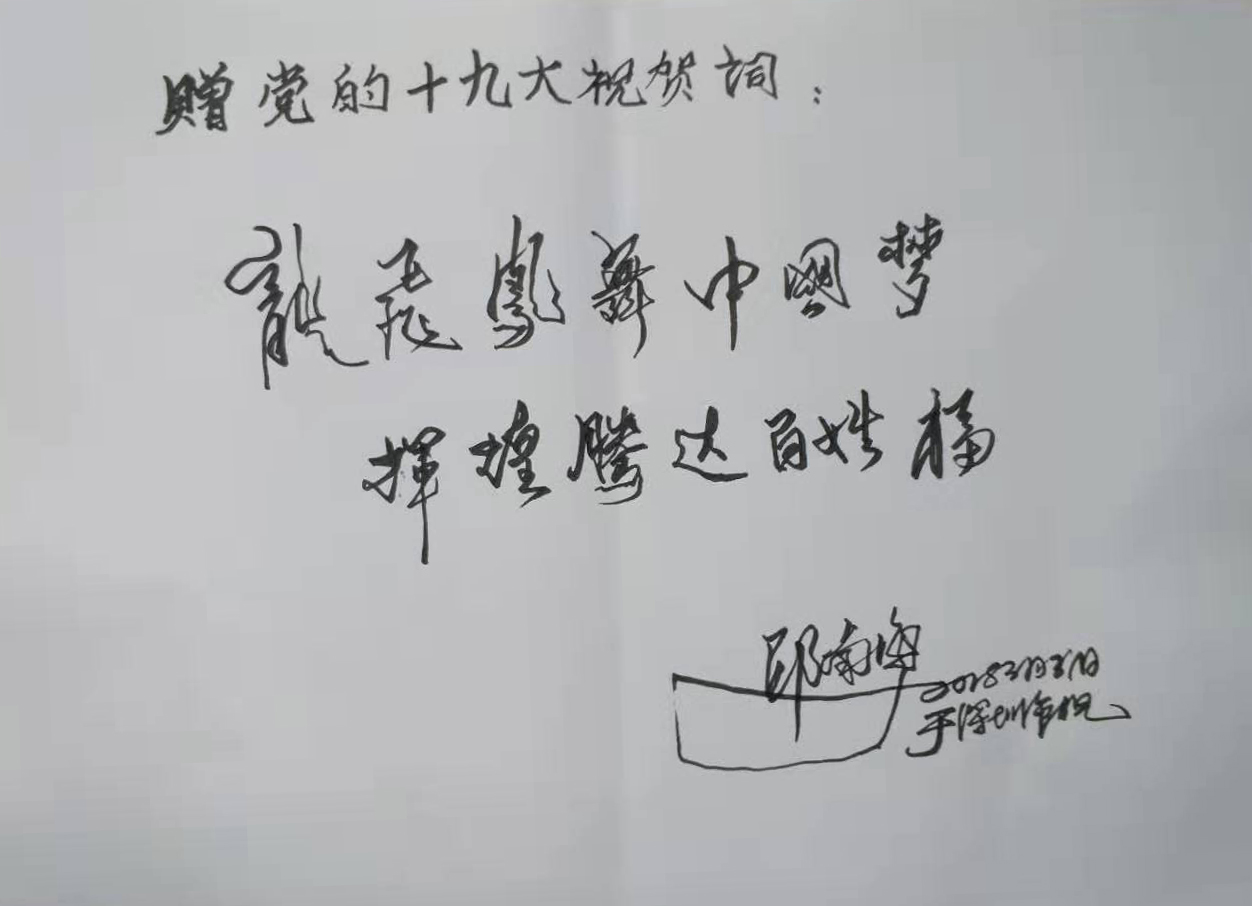 赠党的十九大祝贺词：
龍飛鳳舞中國梦
揮煌腾达百姓福
邱南海
2018 3月31日
于深圳